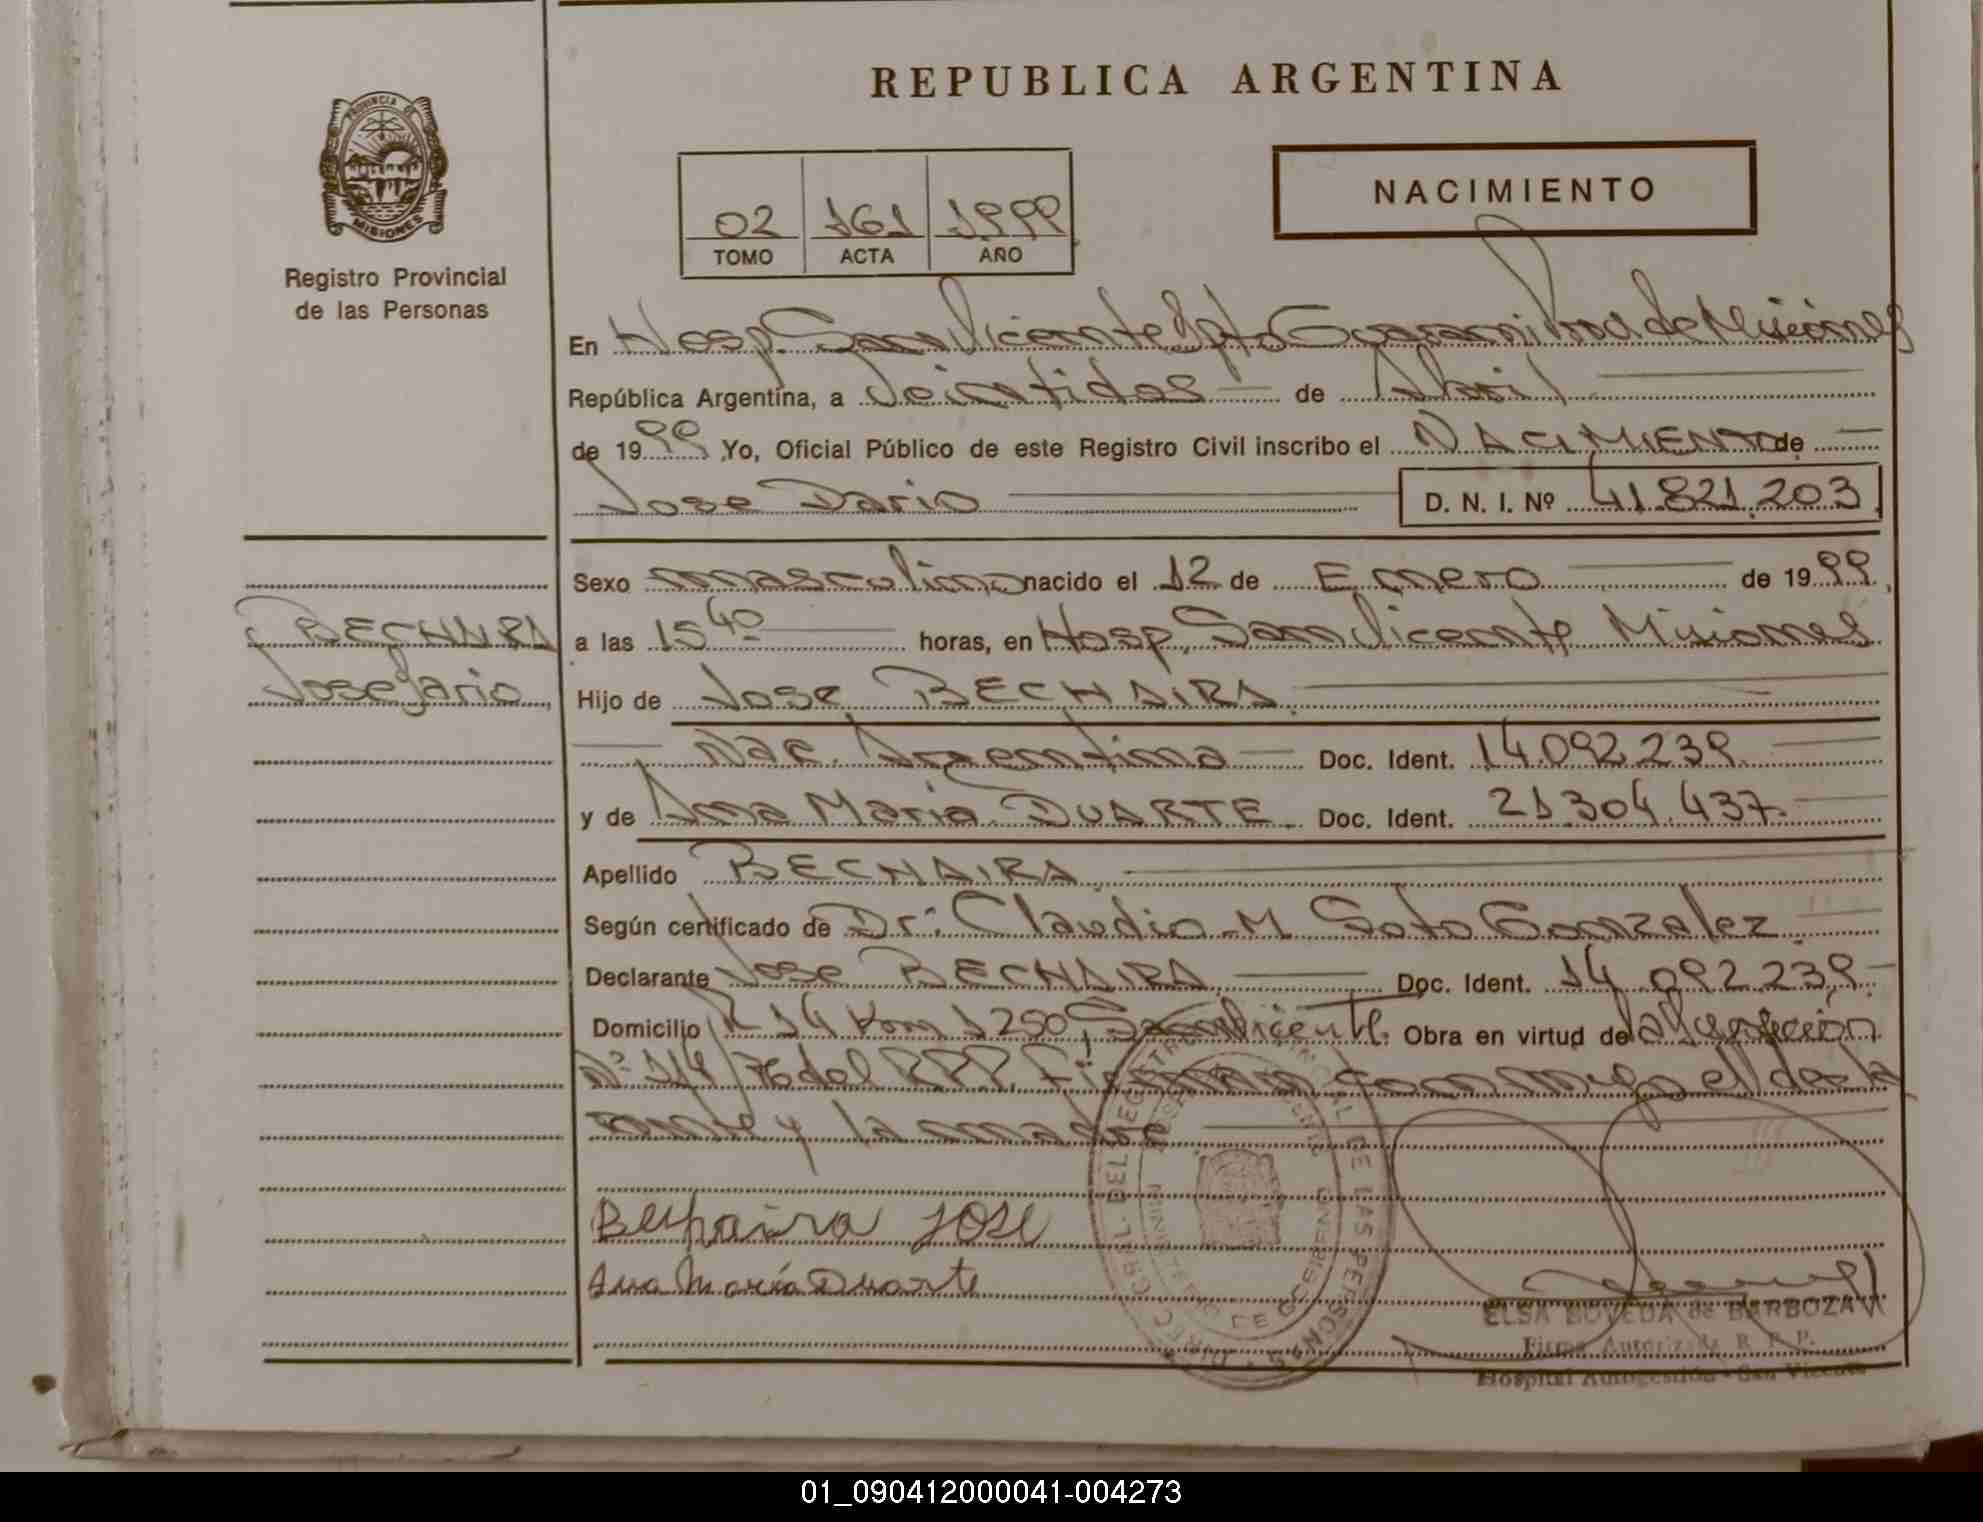 REPUBLICA ARGENTINA
PROVINCIA DE
MISIONES
Registro Provincial
de las Personas
02 161 1999
TOMO ACTA AÑO
NACIMIENTO
En Hosp. San Vicente Dpto Guarani Prov de Misiones
República Argentina, a Veintidos de Abril
de 1999 Yo, Oficial Público de este Registro Civil inscribo el NACIMIENTO de
Jose Dario D. N. I. Nº 41.821.203
Sexo masculino nacido el 12 de Enero de 1999
BECHAIRA
Jose Dario
a las 15 40 horas, en Hosp. San Vicente Misiones
Hijo de Jose BECHAIRA
Nac. Argentina Doc. Ident. 14.092.239
y de Ana Maria DUARTE Doc. Ident. 21.304.437
Apellido BECHAIRA
Según certificado de Dr: Claudio M Soto Gonzalez
Declarante Jose BECHAIRA Doc. Ident. 14.092.239
Domicilio R 14 Km 1250, San Vicente. Obra en virtud de la
Nº 114/76 del RPP. Firman conmigo el decla
rante y la madre
Bechaira JOSE
Ana María Duarte
ELSA BOVEDA de BARBOZA
Firma Autorizada R. P. P.
Hospital Autogestión - San Vicente
01_090412000041-004273